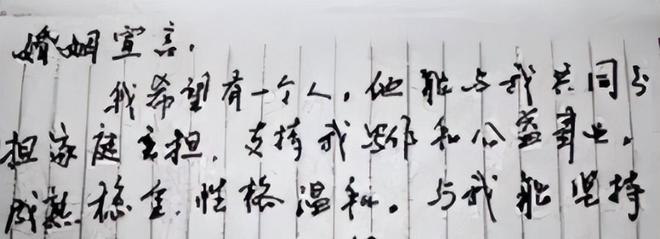 婚姻宣言,
我希望有一个人,他能与我共同分
担家庭重担,支持我写作和公益事业,
成熟稳重,性格温和。与我能坚持